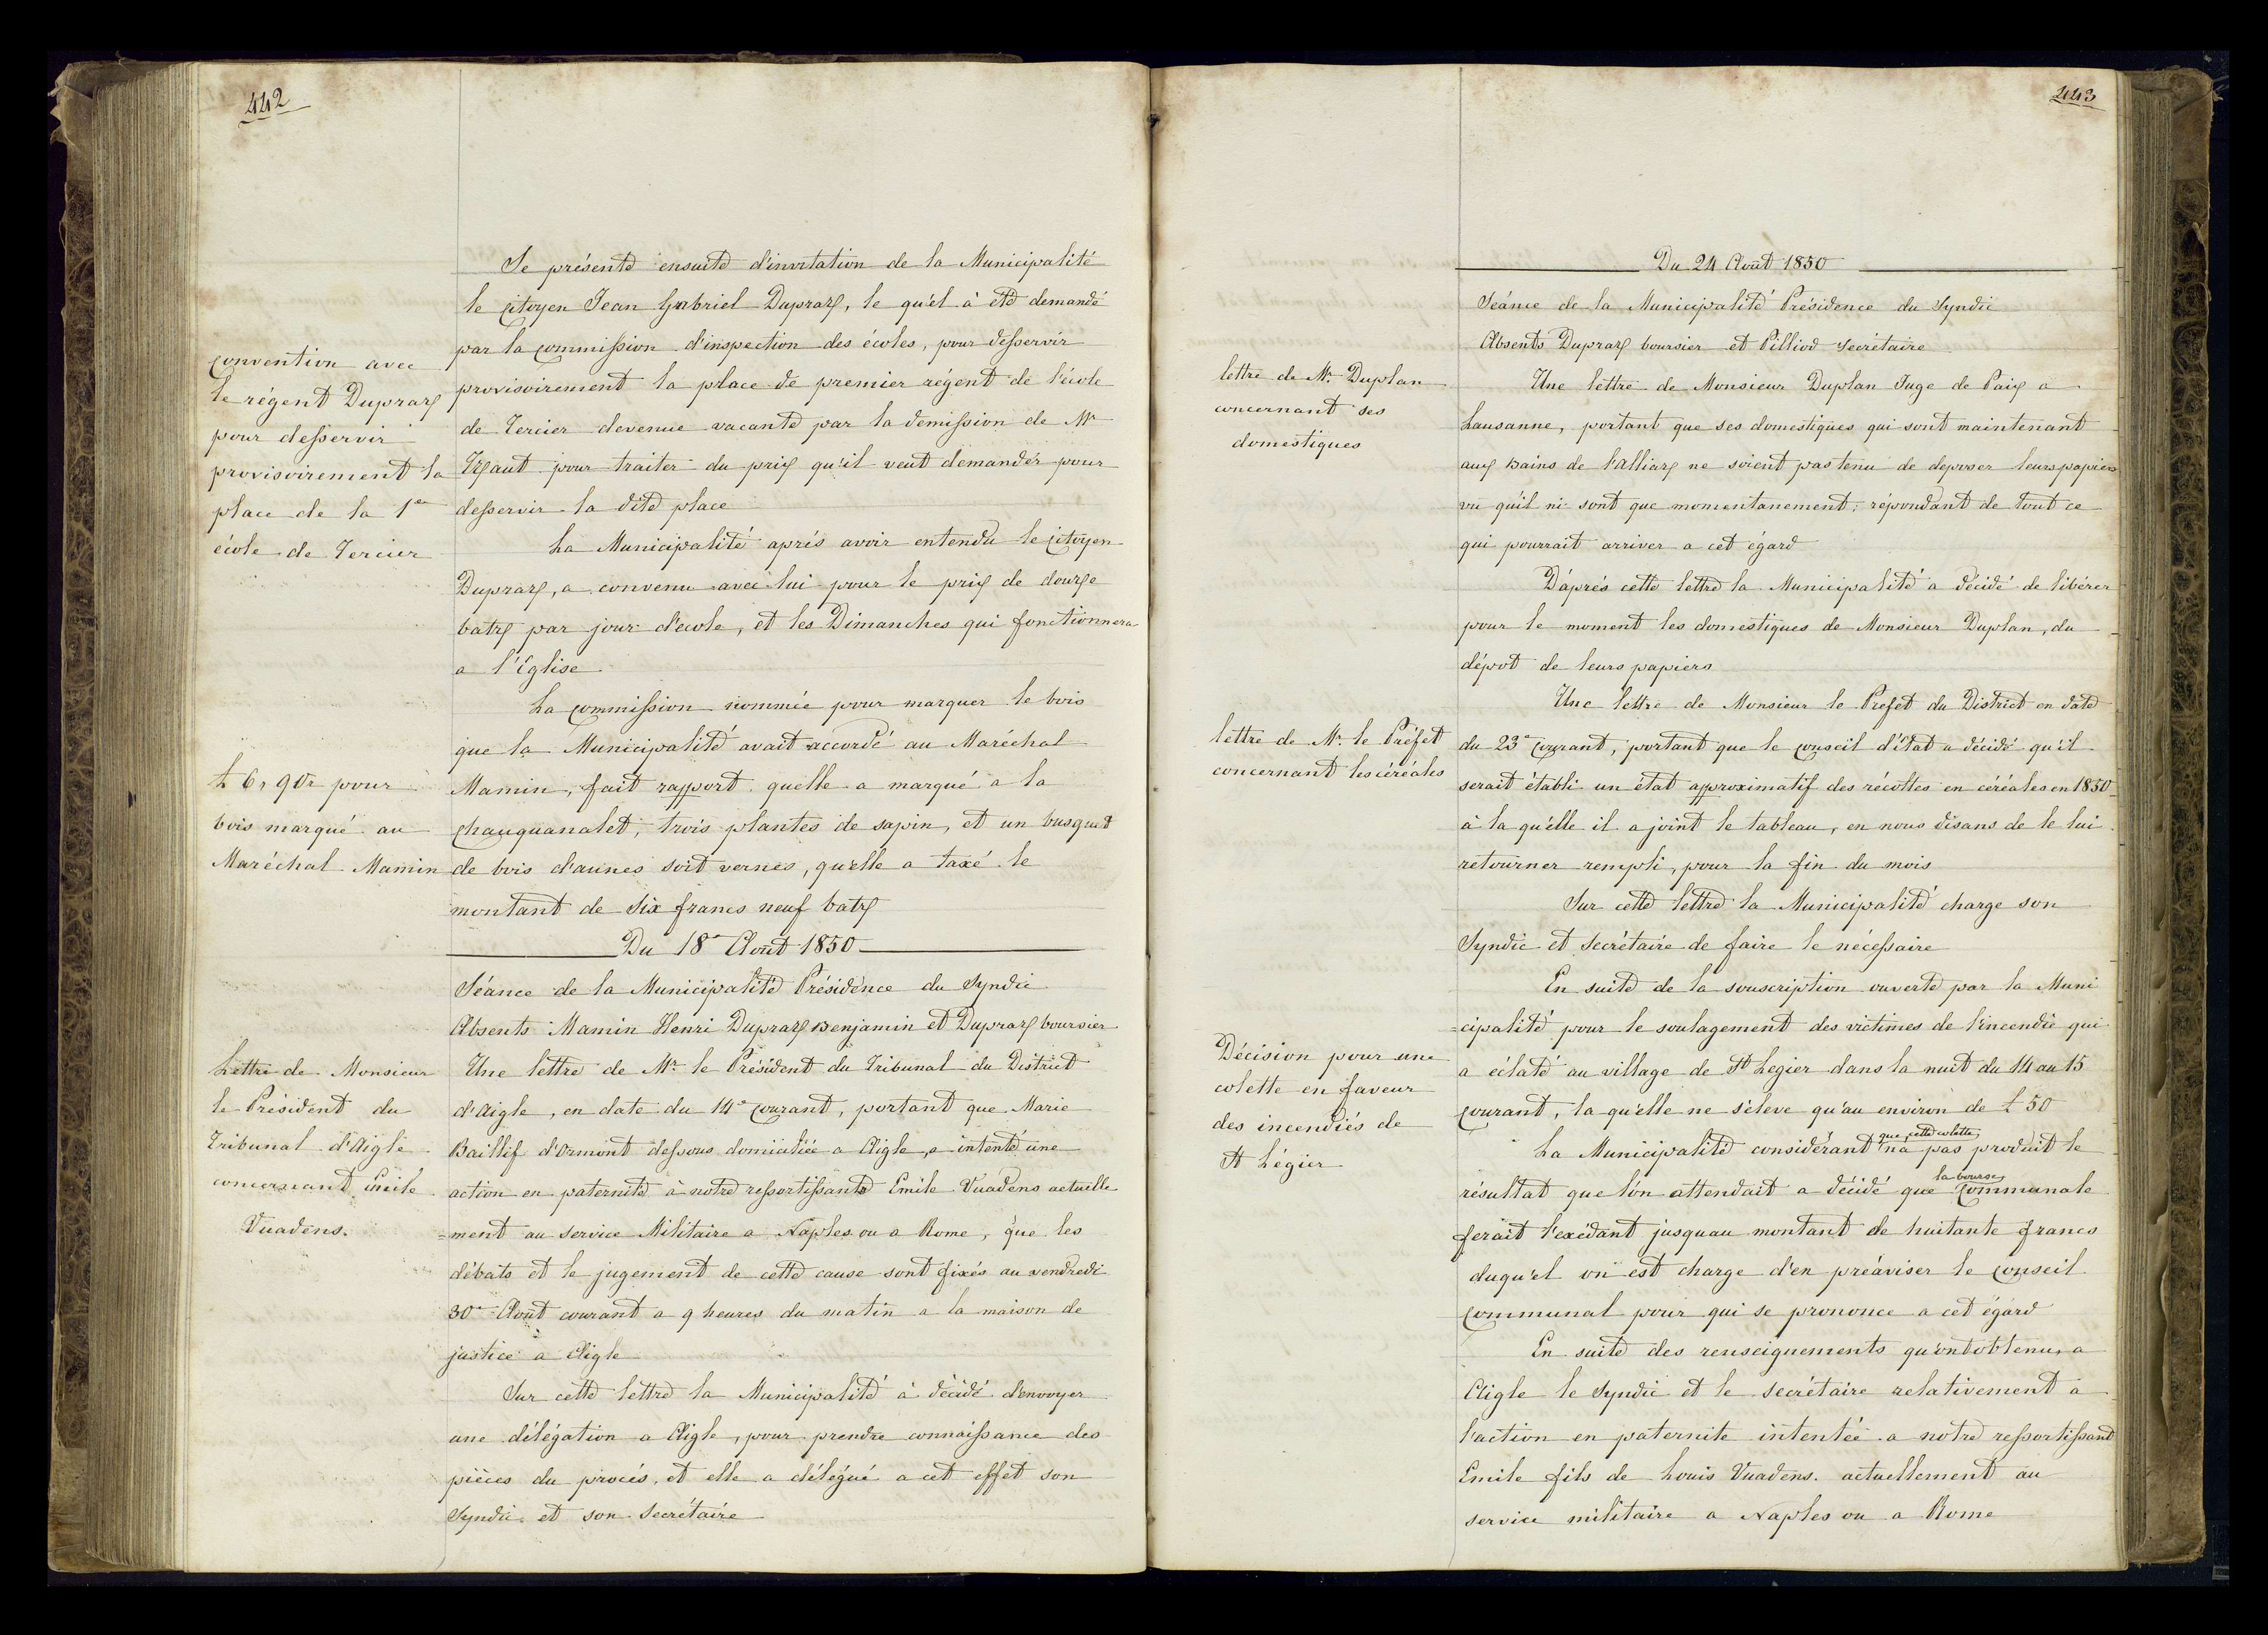 442
Se présente ensuite d'invitation de la Municipalité
le citoyen Jean Gabriel Dupraz, le qu'el à été demandé
par la commission d'inspection des écoles, pour désservir
convention avec
provisoirement la place de premier régent de l'école
le régent Dupraz
de Tercier devenue vacante par la demission de Mr
pour desservir
Yzaut pour traiter du prix qu'il veut demandér pour
provisoirement la
desservir la dite place
place de la 1ere
école de Tercier
La Municipalité aprés avoir entendu le citoyen
Dupraz, a convenu avec lui pour le prix de douze
batz par jour d'ecole, et les Dimanches qui fonctionnera
a l'Église
La commission nommée pour marquer le bois
que la Municipalité avait accordé au Maréchal
£ 6, 90r pour
Mamin, fait rapport quelle a marqué a la
bois marqué au
chauquanalet, trois plantes de sapin, et un busquet
Maréchal Mamin
de bois d'aunes soit vernes, qu'elle a taxé le
montant de Six francs neuf batz
Du 18e Août 1850
Séance de la Municipalité Présidence du Syndic
Absents Mamin Henri Dupraz Benjamin et Dupraz boursier
Lettre de Monsieur
Une lettre de Mr le Président du Tribunal du District
le Président du
d'Aigle, en date du 14e courant, portant que Marie
Tribunal d'Aigle
Baillif d'Ormont dessous domiciliée a Aigle, a intenté une
concernant Emile
action en paternité à notre ressortissante Emile Vuadens actuelle
Vuadens.
=ment au service Militaire a Naples ou a Rome, que les
débats et le jugement de cette cause sont fixés au vendredi
30e Août courant a 9 heures du matin a la maison de
justice a Aigle
Sur cette lettre la Municipalité à décidé d'envoyer
une délégation a Aigle, pour prendre connaissance des
pièces du procés, et elle a délégué a cet effet son
Syndic et son Secrétaire
443
Du 24 Août 1850
Séance de la Municipalité Présidence du Syndic
Absents Dupraz boursier et Pilliod Secrétaire
lettre de Mr. Duplan
concernant ses
domestiques
Une lettre de Monsieur Duplan Juge de Paix a
Lausanne, portant que ses domestiques qui sont maintenant
aux Bains de l'alliaz ne soient pas tenu de deposer leurs papiers
vu qu'il ni sont que momentanement; répondant de tout ce
qui pourrait arriver a cet égard
D'aprés cette lettre la Municipalité a décidé de libérer
pour le moment les domestiques de Monsieur Duplan, du
dépot de leurs papiers
Une lettre de Monsieur le Prefet du District en date
lettre de Mr. le Préfet
concernant les céréales
du 23e courant, portant que le conseil d'état a décidé qu'il
serait établi un état approximatif des récoltes en céréales en 1850
à la qu'elle il a joint le tableau, en nous disans de le lui
retourner rempli, pour la fin du mois
Sur cette lettre la Municipalité charge son
Syndic et Secrétaire de faire le nécessaire
En suite de la souscription ouverte par la Muni
=cipalité pour le soulagement des victimes de l'incendie qui
Décision pour une
colette en faveur
des incendiés de
St Légier
a éclaté au village de St Legier dans la nuit du 14 au 15
courant, la qu'elle ne s'éleve qu'au environ de £ 50
La Municipalité considérant que cette colette na pas produit le
résultat que l'on attendait a décidé que la bourse communale
ferait l'exédant jusquau montant de huitante francs
duqu'el on est charge d'en préaviser le conseil
communal pour qui se prononce a cet égard
En suite des renseignements qu'ont obtenu, a
Aigle le Syndic et le secrétaire relativement a
l'action en paternite intentée a notre ressortissant
Emile fils de Louis Vuadens. actuellement au
service militaire a Naples ou a Rome